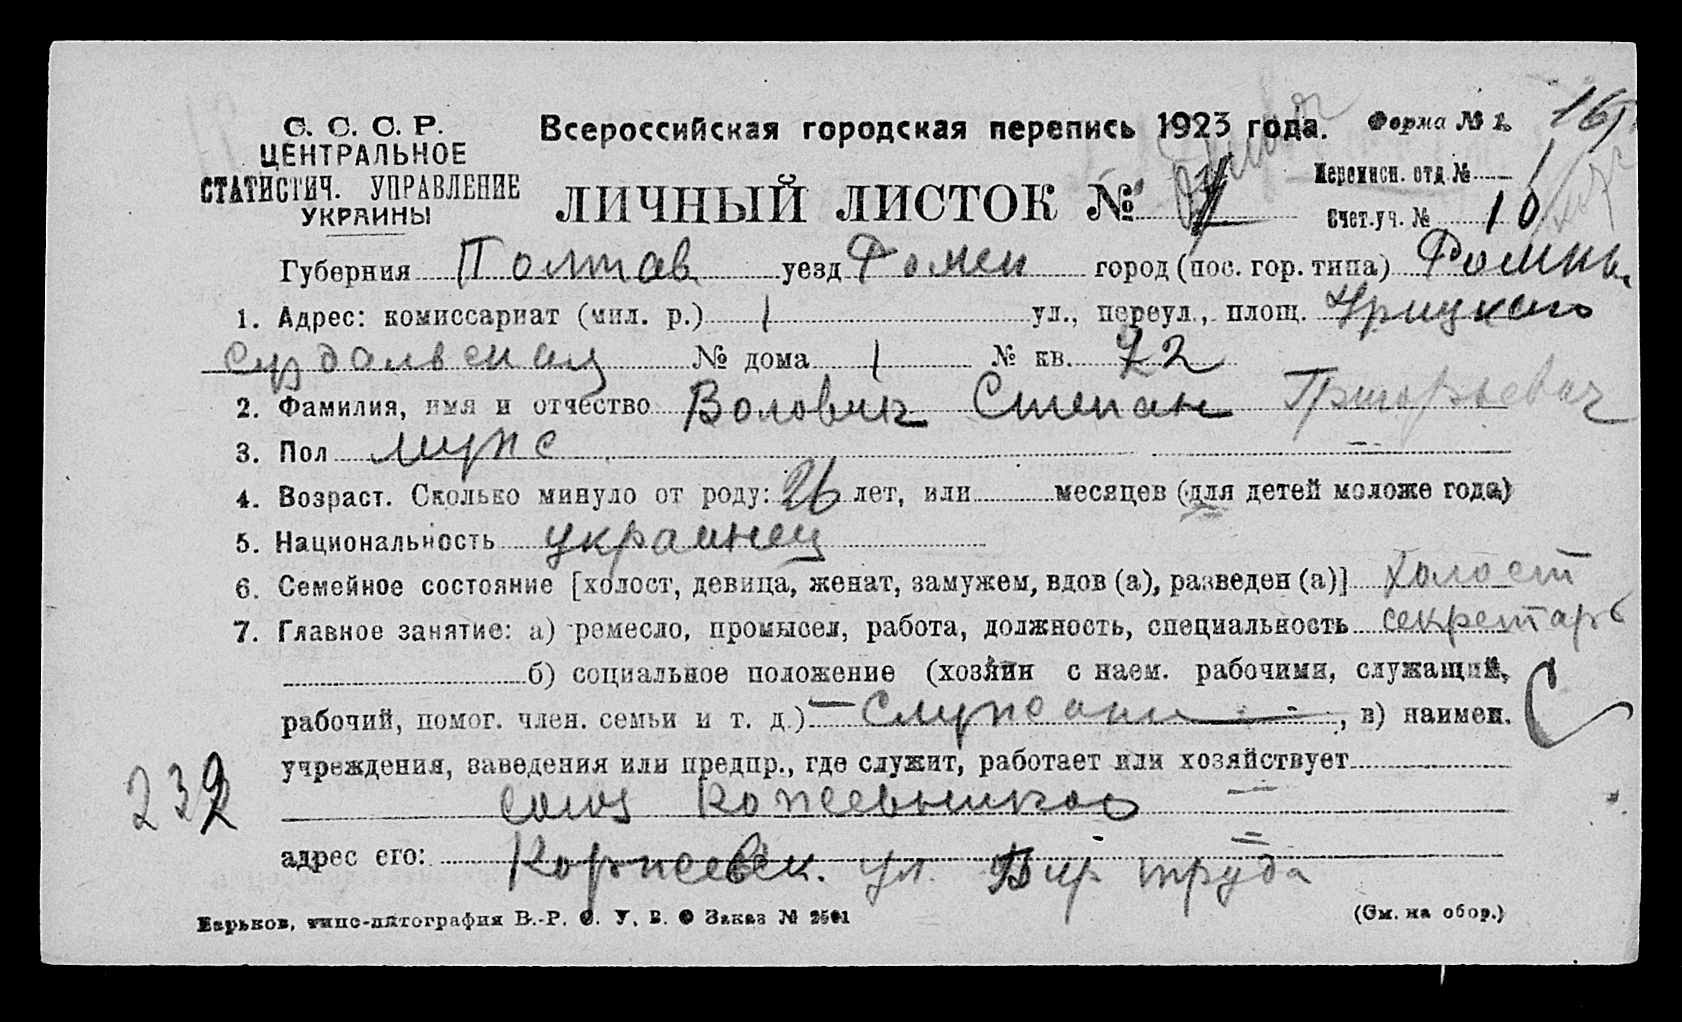 С. С. С. Р.
ЦЕНТРАЛЬНОЕ
СТАТИСТИЧ. УПРАВЛЕНИЕ
УКРАИНЫ
Всероссийская городская перепись 1923 года.
Форма № 1.
ЛИЧНЫЙ ЛИСТОК №
Переписн. отд. № 1
Счет. уч. № 10
Губерния Полтав уезд Ромен город (пос. гор. типа) Ромны
1. Адрес: комиссариат (мил. р.) 1 ул., переул., площ. Урицкого
№ дома 1 № кв. 22
2. Фамилия, имя и отчество Воловик Степан Григорьевич
3. Пол мужс
4. Возраст. Сколько минуло от роду: 26 лет, или месяцев (для детей моложе года)
5. Национальность украинец
6. Семейное состояние [холост, девица, женат, замужем, вдов (а), разведен (а)] холост
7. Главное занятие: а) ремесло, промысел, работа, должность, специальность секретарь
б) социальное положение (хозяин с наем. рабочими, служащий,
рабочий, помог. член. семьи и т. д.) Служащ , в) наимен.
учреждения, заведения или предпр., где служит, работает или хозяйствует
союз Кожевников
239
адрес его: Коржевск. ул. Бир труда
Харьков, типо-литография В.-Р. С. У. В. Заказ № 2501
(См. на обор.)